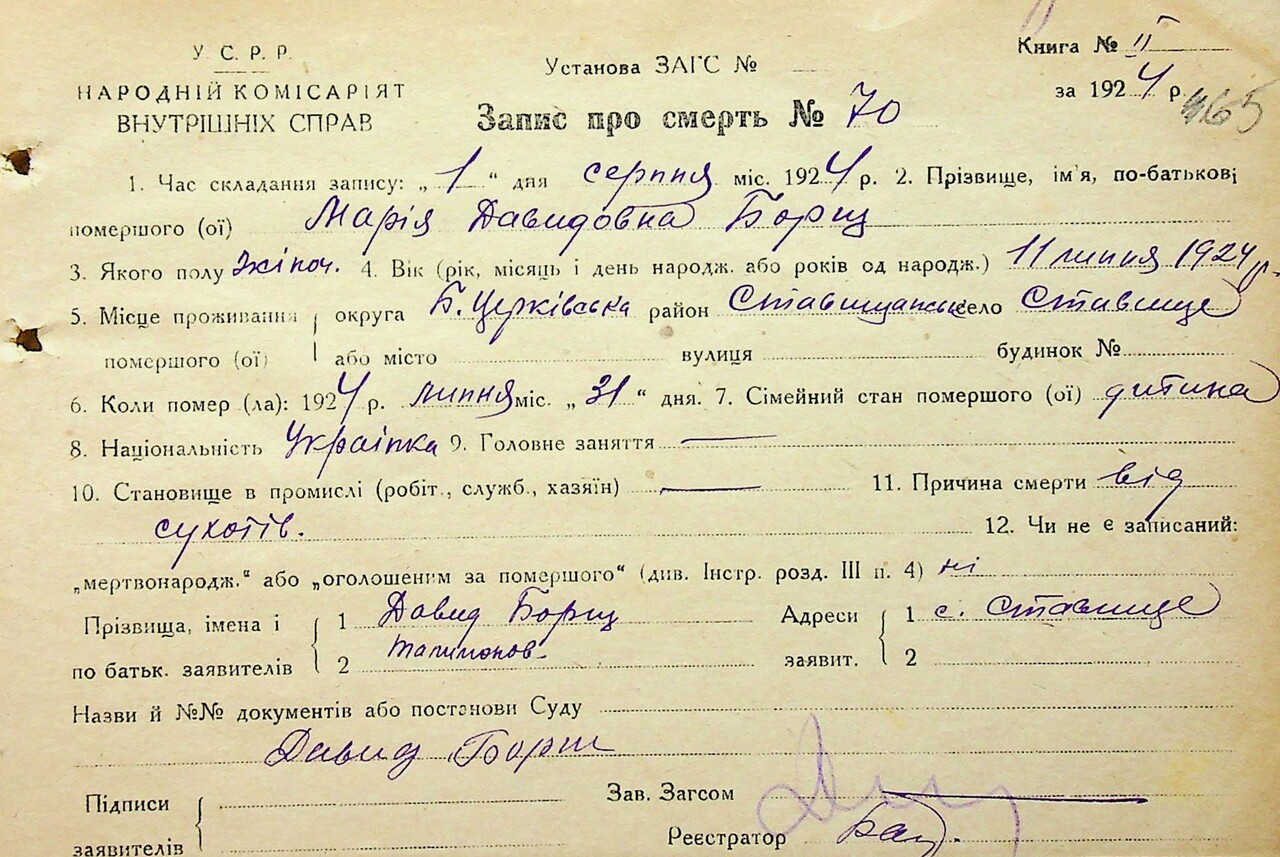 У. С. Р. Р.
НАРОДНІЙ КОМІСАРІЯТ
ВНУТРІШНІХ СПРАВ
Установа ЗАГС №
Книга № II
за 1924 р.
465
Запис про смерть № 70
1. Час складання запису: „1“ дня серпня міс. 1924 р. 2. Прізвище, ім'я, по-батькові
помершого (ої) Марія Давидовна Борщ
3. Якого полу жіноч. 4. Вік (рік, місяць і день народж. або років од народж.) 11 липня 1924 р.
5. Місце проживання округа Б. Церківська район Ставищанськ село Ставище
помершого (ої) або місто вулиця будинок №
6. Коли помер (ла): 1924 р. липня міс. „31“ дня. 7. Сімейний стан помершого (ої) дитина
8. Національність Українка 9. Головне заняття —
10. Становище в промислі (робіт., служб., хазяїн) — 11. Причина смерти від
сухотів. 12. Чи не є записаний:
„мертвонародж.“ або „оголошеним за помершого“ (див. Інстр. розд. III п. 4) ні
Прізвища, імена і 1 Давид Борщ Адреси 1 с. Ставище
по батьк. заявителів 2 Талимонов. заявит. 2
Назви й №№ документів або постанови Суду
Давид Борщ
Підписи Зав. Загсом
заявителів Реєстратор